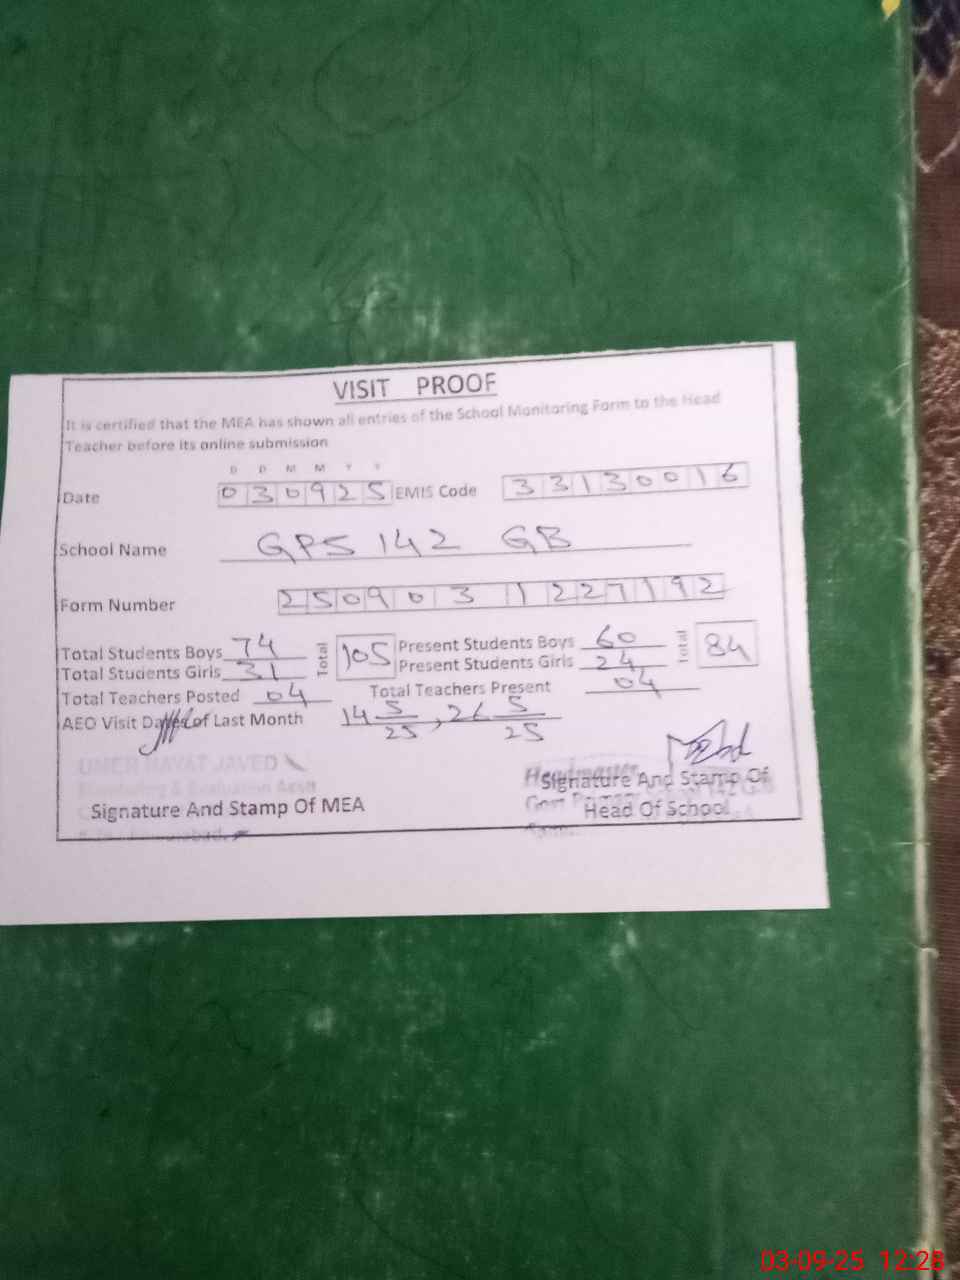 VISIT PROOF
It is certified that the MEA has shown all entries of the School Monitoring Form to the Head
Teacher before its online submission
D D M M Y Y
Date 030925 EMIS Code 33130016
School Name GPS 142 GB
Form Number 2509031227192
Total Students Boys 74 Total 105 Present Students Boys 60 Total 84
Total Students Girls 31 Present Students Girls 24
Total Teachers Posted 04 Total Teachers Present 04
AEO Visit Dates of Last Month 14 5/25, 26 5/25
UMER HAYAT JAVED
Monitoring & Evaluation
Signature And Stamp Of MEA
Headmaster
Signature And Stamp Of
Head Of School
03-09-25 12:28